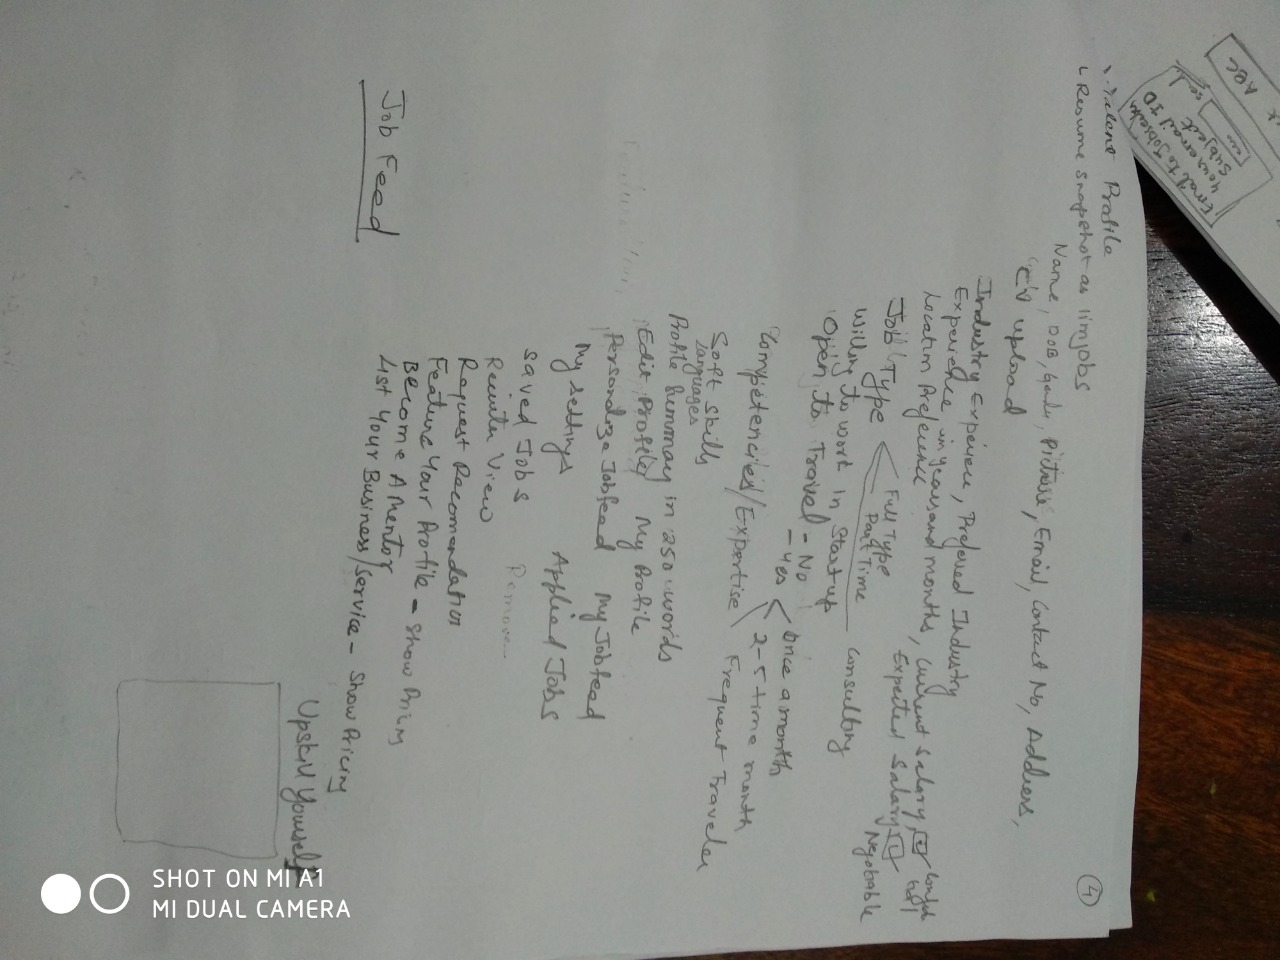 ABC
Email to Jobseeker
Your email ID
Subject
Send
4
Talent Profile
Resume snapshot as iimjobs
Name, DOB, Gender, Picture, Email, Contact No, Address,
CV upload
Industry Experiece, Preferred Industry
Experience in years and months, Current Salary, Confidential
Location Preference Expected Salary Negotiable
Job Type Full Type
Part Time
Consulting
Willing to work in Startup
Open to Travel - No
- Yes Once a month
2-5 time month
Frequent Traveler
Competencies/Expertise
Soft skills
Languages
Profile Summay in 250 words
Edit Profile My Profile
Personalize Jobfeed My Jobfeed
My settings Applied Jobs
Saved Jobs Remove
Recruiter View
Request Recomendation
Feature Your Profile - Show Pricing
Become A Mentor
List Your Business/Service - Show Pricing
Job Feed
Upskill Yourself
SHOT ON MI A1
MI DUAL CAMERA